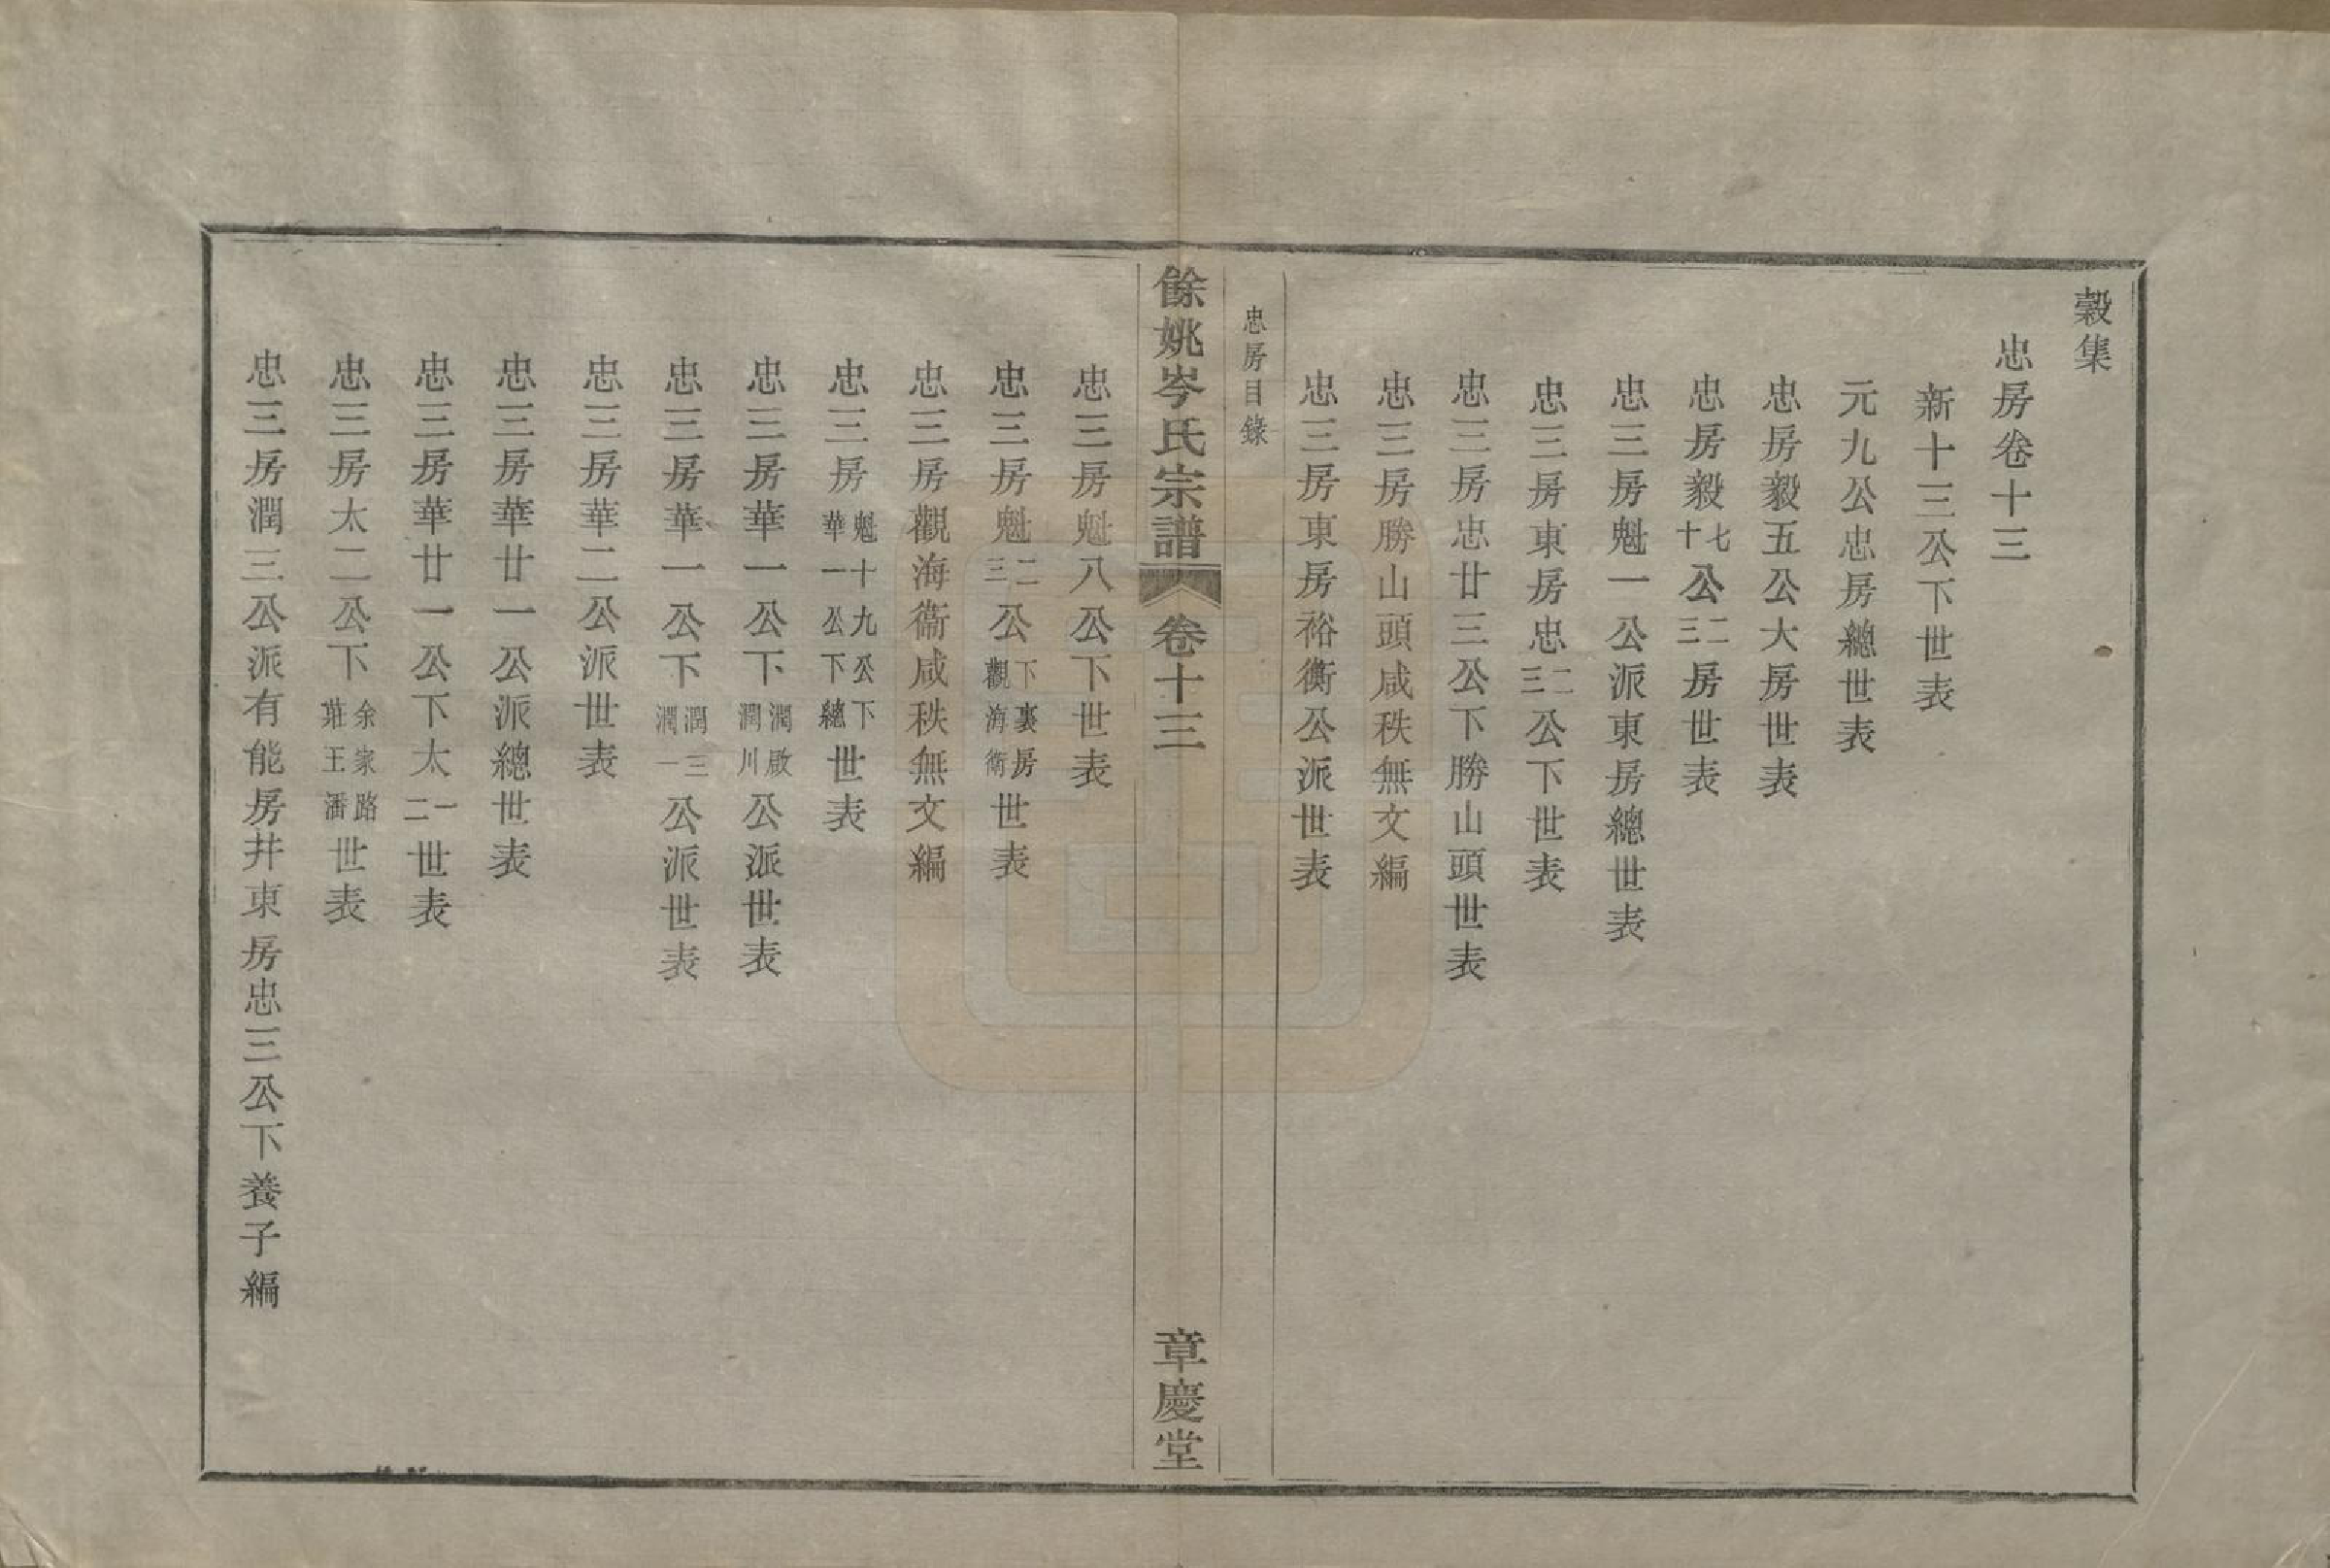 穀集
忠房卷十三
新十三公下世表
元九公忠房總世表
忠房毅五公大房世表
忠房毅七十公二三房世表
忠三房魁一公派東房總世表
忠三房東房忠二三公下世表
忠三房忠廿三公下勝山頭世表
忠三房勝山頭咸秩無文編
忠三房東房裕衡公派世表
忠房目錄
餘姚岑氏宗譜 卷十三 章慶堂
忠三房魁八公下世表
忠三房魁二三公下裏房觀海衛世表
忠三房觀海衞咸秩無文編
忠三房魁十九公下華一公下總世表
忠三房華一公下潤啟潤川公派世表
忠三房華一公下潤三潤一公派世表
忠三房華二公派世表
忠三房華廿一公派總世表
忠三房華廿一公下太一二世表
忠三房太二公下余家路莊王潘世表
忠三房潤三公派有能房井東房忠三公下養子編